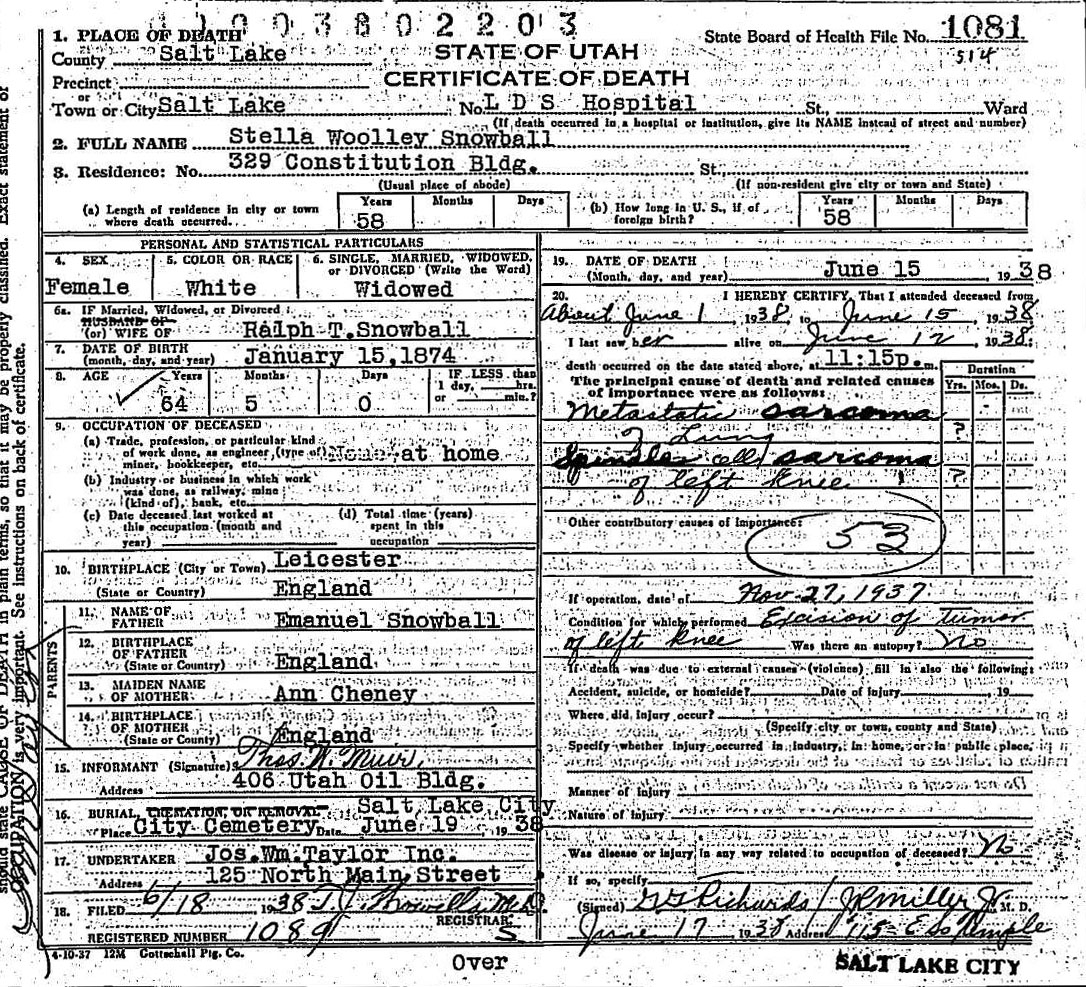 11003802203
1. PLACE OF DEATH
State Board of Health File No. 1081
County Salt Lake
STATE OF UTAH
514
Precinct
CERTIFICATE OF DEATH
or
Town or City Salt Lake No. L D S Hospital St., Ward
(If death occurred in a hospital or institution, give its NAME instead of street and number)
2. FULL NAME Stella Woolley Snowball
3. Residence: No. 329 Constitution Bldg. St.,
(Usual place of abode) (If non-resident give city or town and State)
(a) Length of residence in city or town where death occurred. Years 58 Months Days
(b) How long in U. S., if of foreign birth? Years 58 Months Days
PERSONAL AND STATISTICAL PARTICULARS
4. SEX Female
5. COLOR OR RACE White
6. SINGLE, MARRIED, WIDOWED, or DIVORCED (Write the Word) Widowed
6a. IF Married, Widowed, or Divorced
HUSBAND OF
(or) WIFE OF Ralph T. Snowball
7. DATE OF BIRTH
(month, day, and year) January 15, 1874
8. AGE Years 64 Months 5 Days 0
IF LESS than 1 day, hrs. or min.?
9. OCCUPATION OF DECEASED
(a) Trade, profession, or particular kind
of work done, as engineer, (type of) None at home
miner, bookkeeper, etc.
(b) Industry or business in which work
was done, as railway, mine
(kind of), bank, etc.
(c) Date deceased last worked at
this occupation (month and
year)
(d) Total time (years)
spent in this
occupation
10. BIRTHPLACE (City or Town) Leicester
(State or Country) England
PARENTS
11. NAME OF FATHER Emanuel Snowball
12. BIRTHPLACE OF FATHER
(State or Country) England
13. MAIDEN NAME OF MOTHER Ann Cheney
14. BIRTHPLACE OF MOTHER
(State or Country) England
15. INFORMANT (Signature) Thos. N. Muir
Address 406 Utah Oil Bldg.
16. BURIAL, CREMATION, OR REMOVAL Salt Lake City
Place City Cemetery Date June 19 1938
17. UNDERTAKER Jos. Wm. Taylor Inc.
Address 125 North Main Street
18. FILED 6/18 1938 T. J. Howells M.D.
REGISTRAR
REGISTERED NUMBER 1089 S
4-10-37 12M Gottschall Ptg. Co.
Over
19. DATE OF DEATH
(Month, day, and year) June 15 1938
20. I HEREBY CERTIFY, That I attended deceased from
About June 1, 1938, to June 15, 1938
I last saw her alive on June 12, 1938;
death occurred on the date stated above, at 11:15p. m.
The principal cause of death and related causes
of importance were as follows:
Duration
Yrs. Mos. Ds.
Metastatic sarcoma
of Lung ?
Spindle cell sarcoma
of left knee ?
Other contributory causes of importance:
53
If operation, date of Nov 27, 1937.
Condition for which performed Excision of tumor
of left knee Was there an autopsy? No
If death was due to external causes (violence) fill in also the following:
Accident, suicide, or homicide? Date of Injury , 19
Where did injury occur?
(Specify city or town, county and State)
Specify whether injury occurred in industry, in home, or in public place,
Manner of Injury
Nature of Injury
Was disease or injury in any way related to occupation of deceased? No
If so, specify
(Signed) G G Richards / J R Miller Jr M. D.
June 17 1938 Address 115 E So Temple
SALT LAKE CITY
should state CAUSE OF DEATH in plain terms, so that it may be properly classified. Exact statement of
OCCUPATION is very important. See instructions on back of certificate.